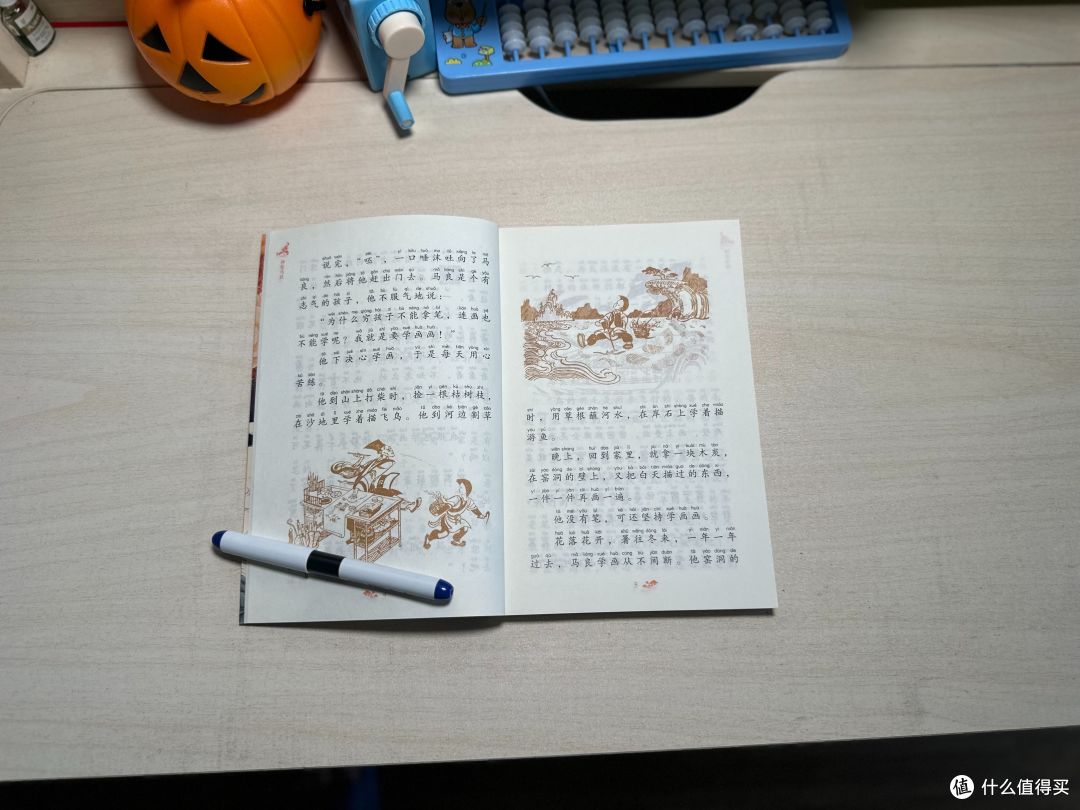 说完，“呸”，一口唾沫吐向了马
良，然后将他赶出门去。马良是个有
志气的孩子，他不服气地说：
“为什么穷孩子不能拿笔，连画也
不能学呢？我就是要学画画！”
他下决心学画，于是每天用心
苦练。
他到山上打柴时，捡一根枯树枝，
在沙地里学着描飞鸟。他到河边割草
时，用草根蘸河水，在岸石上学着描
游鱼。
晚上，回到家里，就拿一块木炭，
在窑洞的壁上，又把白天描过的东西，
一件一件再画一遍。
他没有笔，可还坚持学画画。
花落花开，暑往冬来，一年一年
过去，马良学画从不间断。他窑洞的
值 什么值得买